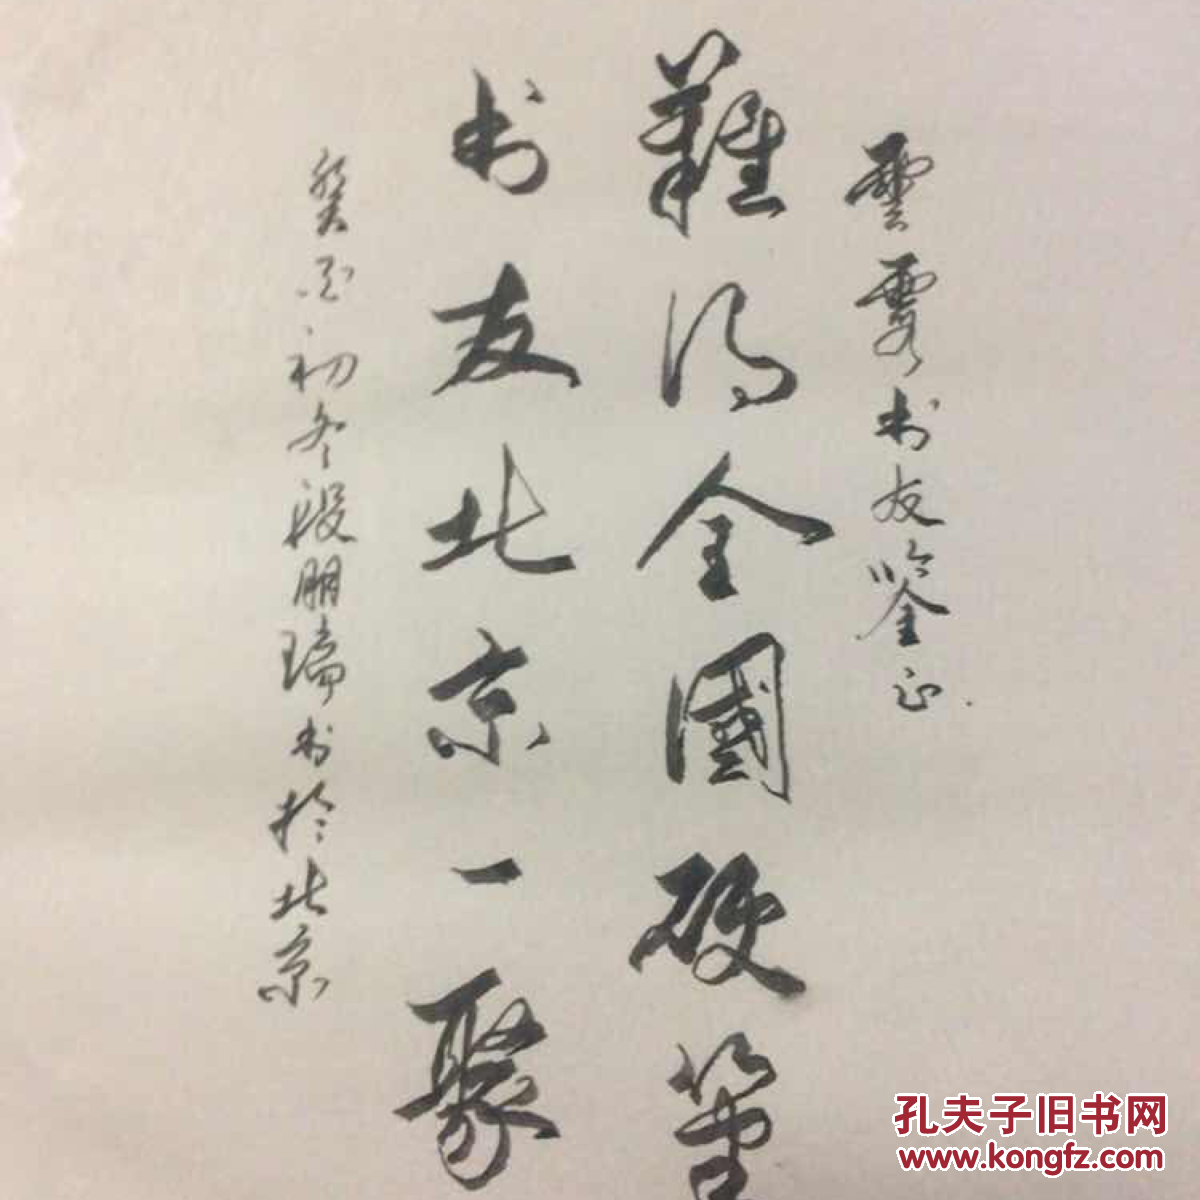 雲霞书友鉴正
難得全國硬筆
书友北京一聚
癸酉初冬段朋瑞书於北京
孔夫子旧书网
www.kongfz.com